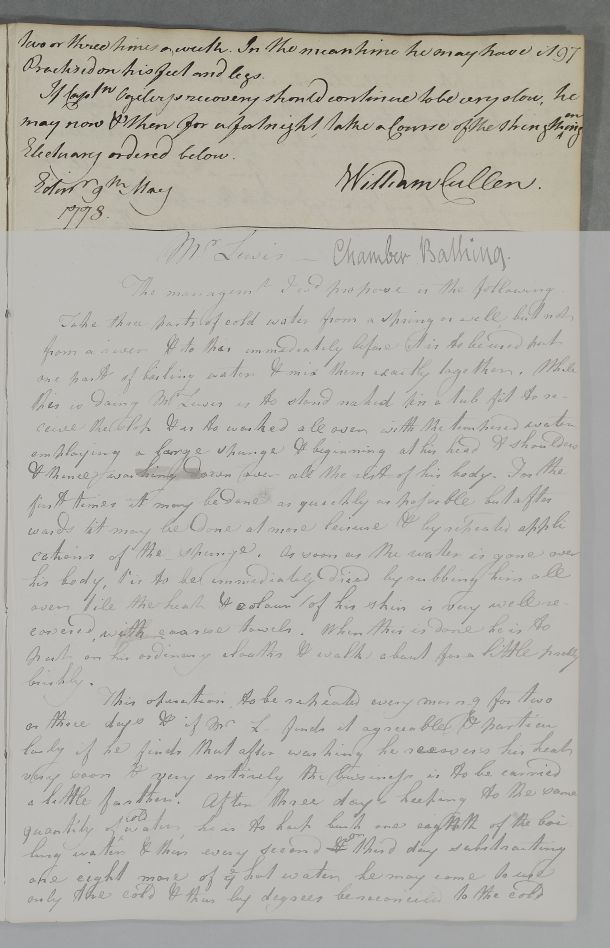 two or three times a week. In the meantime he may have it 197
Practised on his feet and legs.
If Captn Ogilvys recovery should continue to be very slow, he
may now & then for a fortnight, take a Course of the Strengthning
Electuary ordered below.
Edinr 9th May William Cullen.
1778.
Mr Lewis — Chamber Bathing.
The managemt I wd propose is the following.
Take three parts of cold water from a spring or well, but not
from a river & to this immediately before it is to be used put
one part of boiling water & mix them exactly together. While
this is doing Mr Lewis is to stand naked in a tub fit to re-
ceive the & is to be washed all over with the tempered water
employing a large spunge & beginning at his head & shoulders
& thence washing down over all the rest of his body. For the
first times it may be done as quickly as possible but after
wards it may be done at more leisure & by repeated appli
cations of the spunge. As soon as the water is gone over
his body, he is to be immediately dried by rubbing him all
over 'tile the heat & colour of his skin is very well re-
covered with coarse towels. When this is done he is to
put on his ordinary cloaths & walk about for a little pretty
briskly.
This operation to be repeated every morng for two
or three days & if Mr L. finds it agreeable & particu
larly if he finds that after washing he recovers his heat
very soon & very entirely the business is to be carried
a little farther. After three days keeping to the same
quantity of cold water, he is to keep back one eighth of the boi
ling water & thus every second or third day substracting
one eight more of ye hot water he may come to use
only the cold & thus by degrees be reconciled to the cold